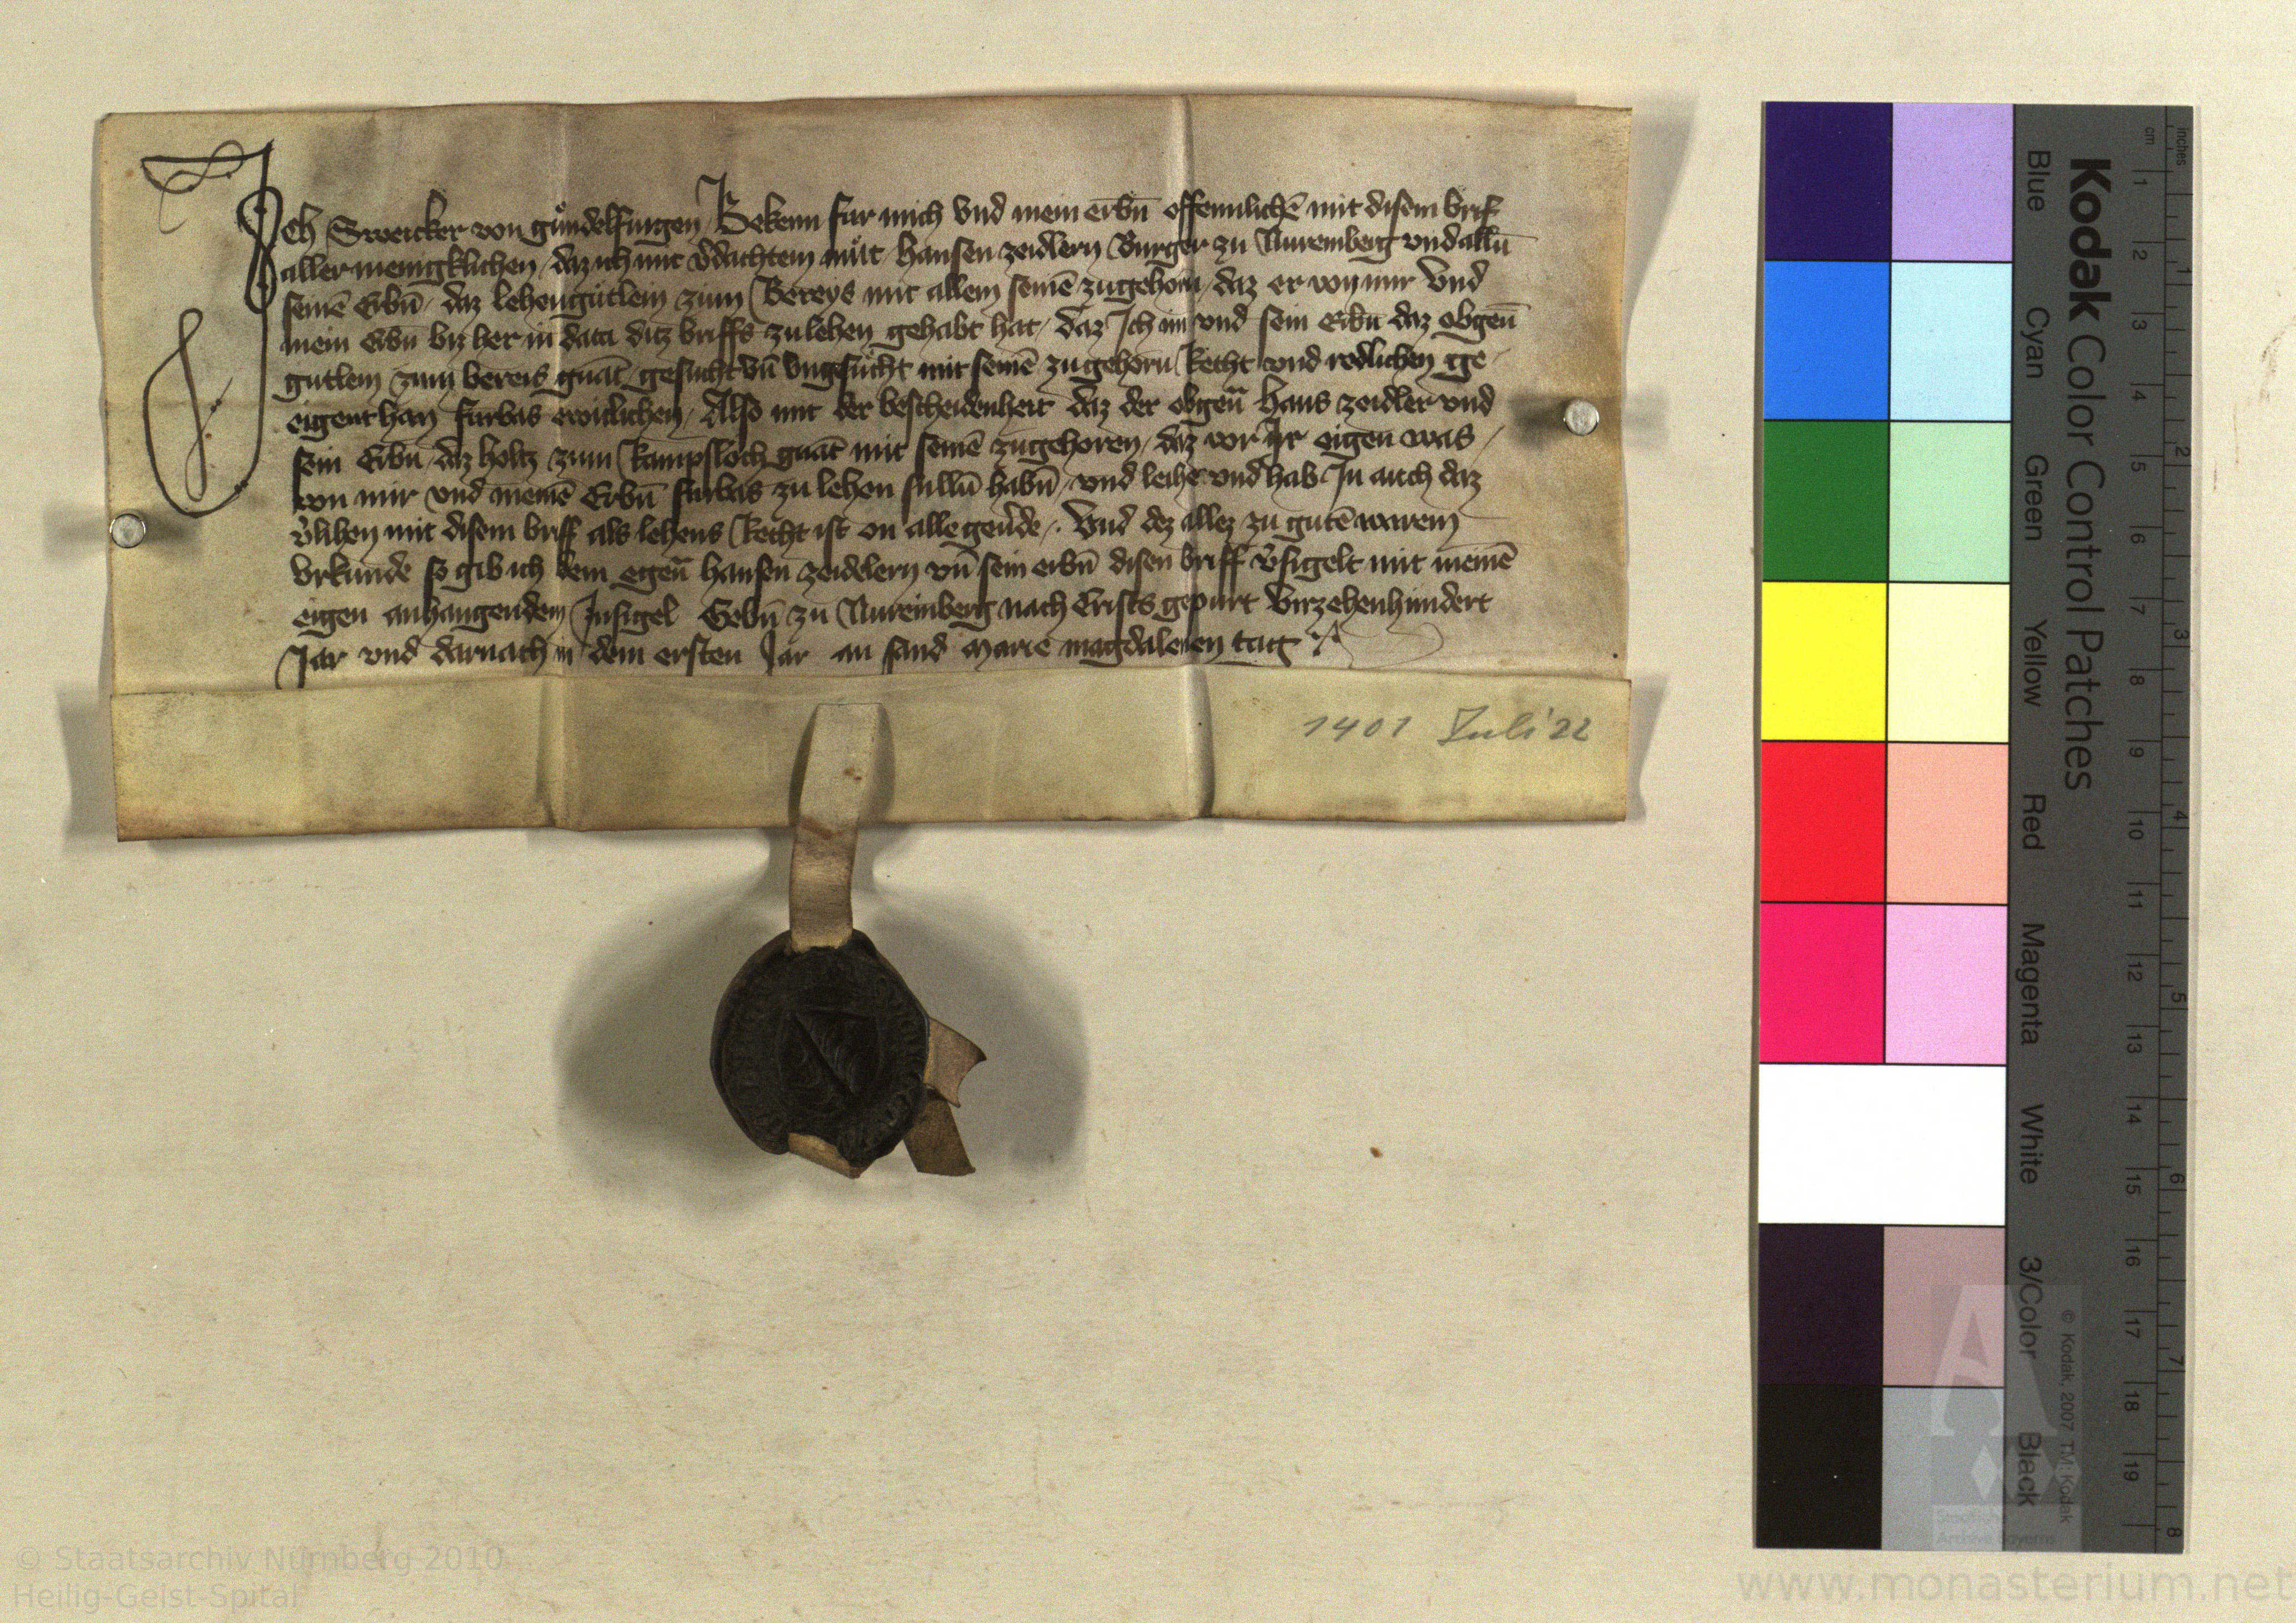 Ich Sweicker von gundelfingen Bekenn fur mich vnd mein erbñ offennlichē mit disem brif
allermenigklichen / daz ich mit v̾dachtem mut / hansen zeidlern Burger zu Nuremberg vnd allñ
seinē Erbñ / daz lehengutlein zum Bereys mit allem seinē zugehorñ / daz er von mir vnd
mein Erbñ biz her in data ditz briffs zu lehen gehabt hat / daz Ich im vnd sein Erbñ daz obgeñ
gutlein zum bereis gnāt / gesucht vñ vngesucht mit seinē zugehorñ Recht vnd redlichen ge-
eigent han furbas ewiclichen / Also mit der bescheidenheit daz der obgeñ Hans zeidler vnd
sein Erbñ / daz holtz zum Kampsloch gnāt mit seinē zugehoren / daz vor Ir eigen was /
von mir vnd meinē Erbñ furbas zu lehen sullñ habñ / vnd leihe vnd hab In auch daz
v̾lihen mit disem briff als lehens Recht ist on alle gev̾de / Vnd dez allez zu gutē warem
Vrkunde so gib ich dem egeñ hansen zeidelern vñ sein erbñ disen briff v̾sigelt mit meinē
eigen anhangendem Insigel Gebñ zu Nuremberg nach Crists gepurt Virzehenhundert
Jar vnd darnach in dem ersten Jar an sand Marie magdalenen tag
1401 Juli 22
Kodak Color Control Patches
Blue Cyan Green Yellow Red Magenta White 3/Color Black
© Kodak, 2007 TM: Kodak
cm 1 2 3 4 5 6 7 8 9 10 11 12 13 14 15 16 17 18 19
inches 1 2 3 4 5 6 7 8
Staatliche
Archive Bayerns
© Staatsarchiv Nürnberg 2010
Heilig-Geist-Spital
www.monasterium.net